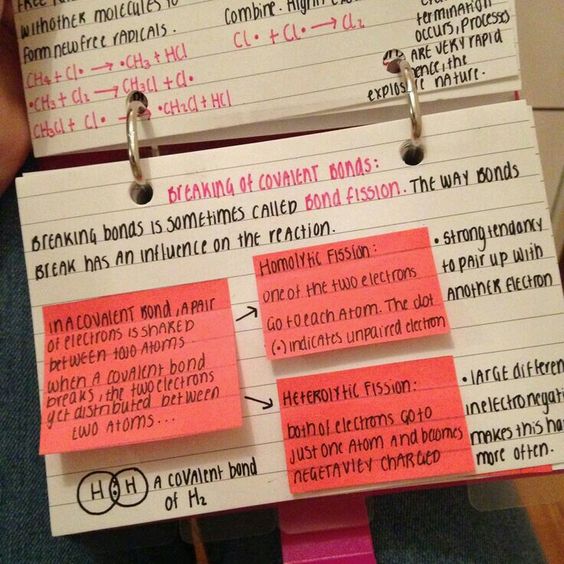 with other molecules to
form new free radicals.
CH4 + Cl• → •CH3 + HCl
•CH3 + Cl2 → CH3Cl + Cl•
CH3Cl + Cl• → •CH2Cl + HCl
combine.
Cl• + Cl• → Cl2
termination
occurs, processes
ARE VERY RAPID
the
nature.
BREAKING OF COVALENT BONDS:
BREAKING BONDS IS SOMETIMES CALLED BOND FISSION. THE WAY BONDS
BREAK HAS AN INFLUENCE ON THE REACTION.
IN A COVALENT BOND, A PAIR
OF electrons IS SHARED
between two Atoms
when A covalent bond
breaks, the two electrons
get distributed between
two Atoms...
HOMOLYTIC FISSION:
one of the two electrons
Go to each Atom. The dot
(•) indicates unpaired electron
• strong tendancy
to pair up with
another electron
HETEROLYTIC FISSION:
both of electrons GO to
just one Atom and becomes
NEGETAVLEY CHARGED
• LARGE
in
makes this
more often.
H H
A covalent bond
of H2